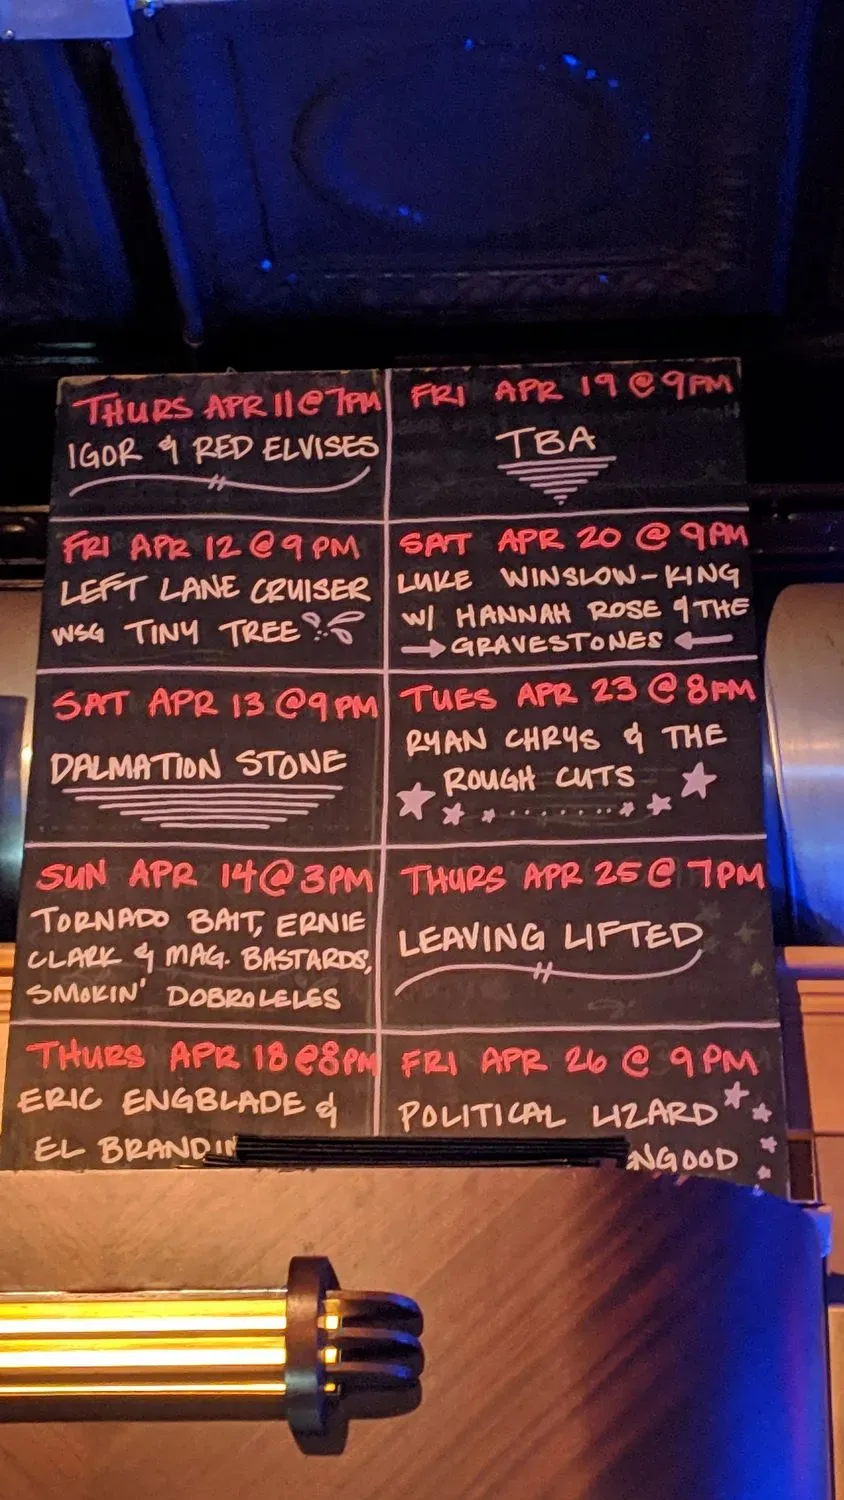 THURS APR 11 @ 7PM
IGOR & RED ELVISES
FRI APR 12 @ 9 PM
LEFT LANE CRUISER
WSG TINY TREE
SAT APR 13 @ 9PM
DALMATION STONE
SUN APR 14 @ 3PM
TORNADO BAIT, ERNIE
CLARK & MAG. BASTARDS,
SMOKIN' DOBROLELES
THURS APR 18 @ 8PM
ERIC ENGBLADE &
EL
FRI APR 19 @ 9PM
TBA
SAT APR 20 @ 9PM
LUKE WINSLOW-KING
W/ HANNAH ROSE & THE
GRAVESTONES
TUES APR 23 @ 8PM
RYAN CHRYS & THE
ROUGH CUTS
THURS APR 25 @ 7PM
LEAVING LIFTED
FRI APR 26 @ 9 PM
POLITICAL LIZARD